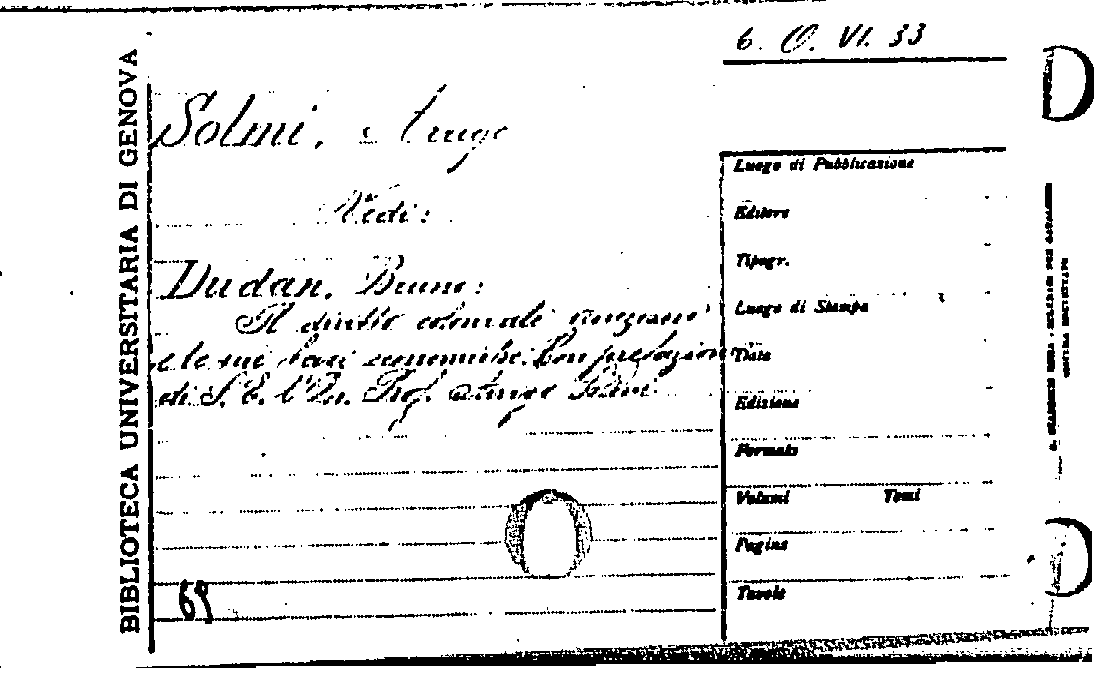 6. O. VI. 33
BIBLIOTECA UNIVERSITARIA DI GENOVA
Solmi, Arrigo
Vedi:
Dudan, Bruno:
Il diritto coloniale veneziano
e le sue basi economiche. Con prefazione
di S. E. l'On. Prof. Arrigo Solmi
69
Luogo di Pubblicazione
Editore
Tipogr.
Luogo di Stampa
Data
Edizione
Formato
Volumi Tomi
Pagine
Tavole